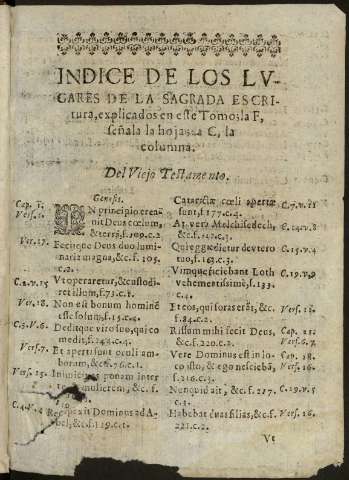 INDICE DE LOS LV-
GARES DE LA SAGRADA ESCRI-
tura, explicados en este Tomo; la F,
señala la hoja, la C, la
columna.
Del Viejo Testamento.
Genesis.
Cap. 1.
Vers. 1. IN principio crea-
uit Deus cœlum,
& terrā, f. 109. c. 2.
Ver. 17. Fecitque Deus duo lumi-
naria magna, &c. f. 105.
c. 2.
C. 2. v. 15 Vt operaretur, & custodi-
ret illum, f. 73. c. 1.
Ver. 18. Non est bonum hominē
esse solum, f. 15. c. 4.
C. 3. V. 6. Deditque viro suo, qui co
medit, f. 242. c. 4.
Vers. 7. Et aperti sunt oculi am-
borum, & c. 76. c. 1.
Vers. 15. Inimicitias ponam inter
te & mulierem, &c. f.
C. 4. v. 4 Respexit Dominus ad A-
bel, &c. f. 119. c. 1.
Cataractæ cœli apertæ C. 7. v. 11
sunt, f. 177. c. 4.
At verò Melchisedech, C. 14. v. 8
&c. f. 142. c. 3.
Qui egredietur de vtero C. 15. v. 4
tuo, f. 163. c. 3.
Vimque faciebant Loth C. 19. v. 9
vehementissimè, f. 133.
c. 4.
Et eos, qui foras erāt, &c. Vers. 11.
f. 84. c. 2.
Risum mihi fecit Deus, Cap. 21.
&c. f. 220. c. 2. Vers. 6. 7.
Vere Dominus est in lo- Cap. 28.
co isto, & ego nesciebā, Vers. 16.
f. 216. c. 3.
Nenquid ait, &c. f. 217. C. 29. v. 5
c. 3.
Habebat duas filias, &c. f. Vers. 16.
221. c. 2.
Vt